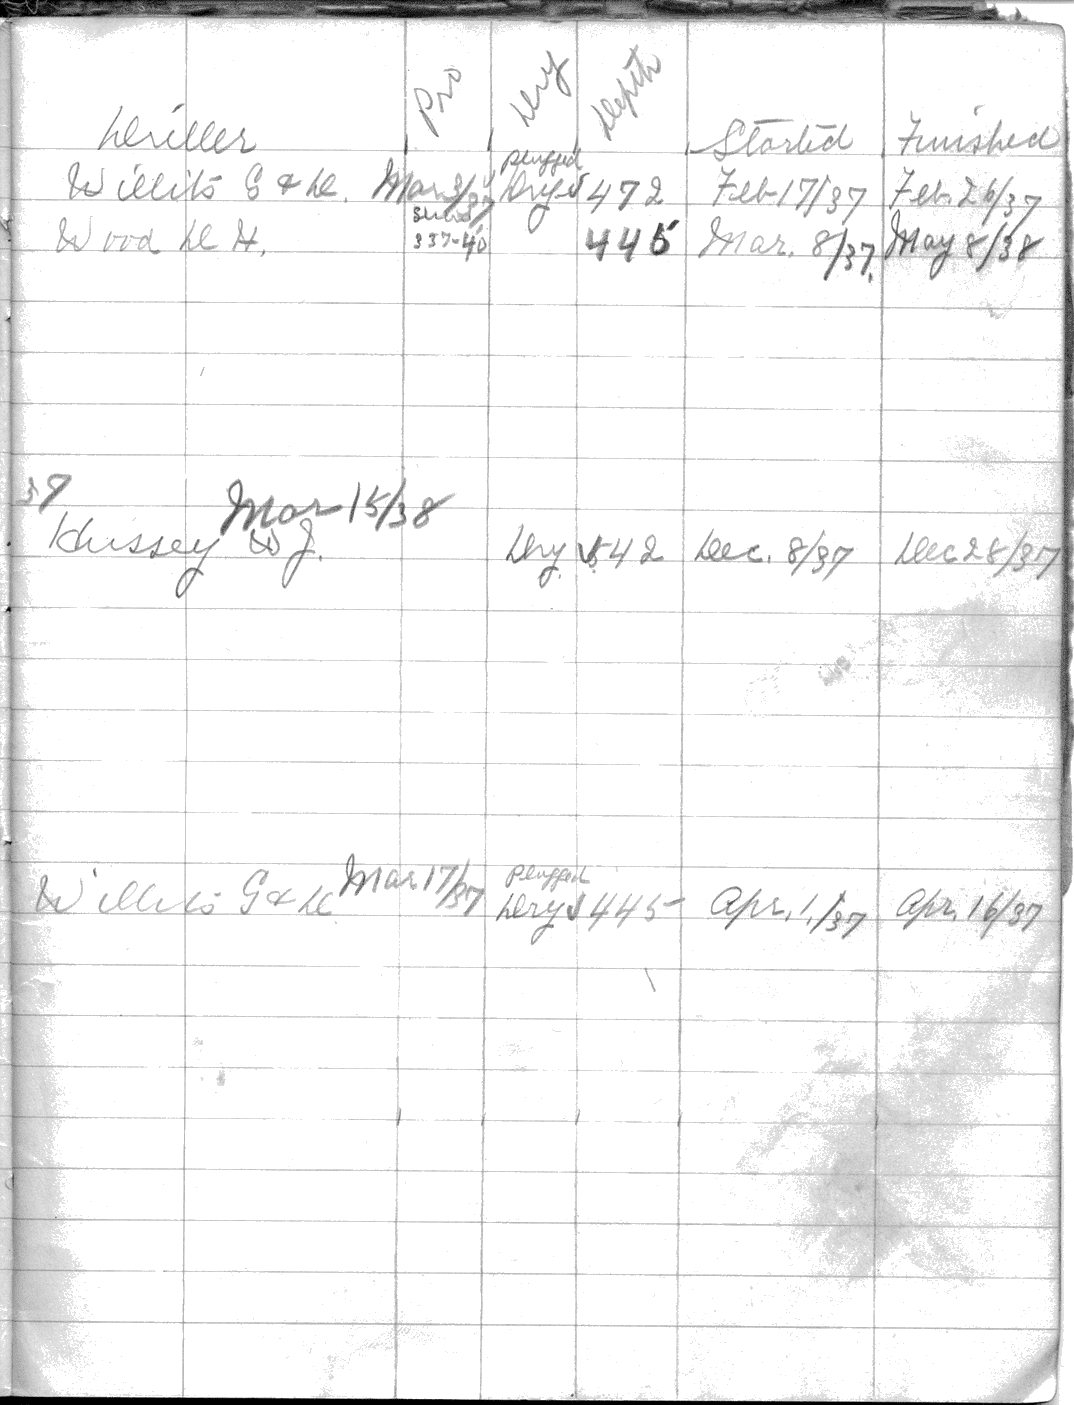 Driller Pro Dry Depth Started Finished
plugged
Willits G & D. Mar 3/37 Dry ✓ 472 Feb 17/37 Feb. 26/37
337-40
Wood D H. 445 Mar. 8/37. May 8/38
37
Mar 15/38
Hussey W J. Dry. ✓ 542 Dec. 8/37 Dec 28/37
plugged
Willits G & D Mar 17/37 Dry ✓ 445 Apr. 1./37 Apr. 16/37